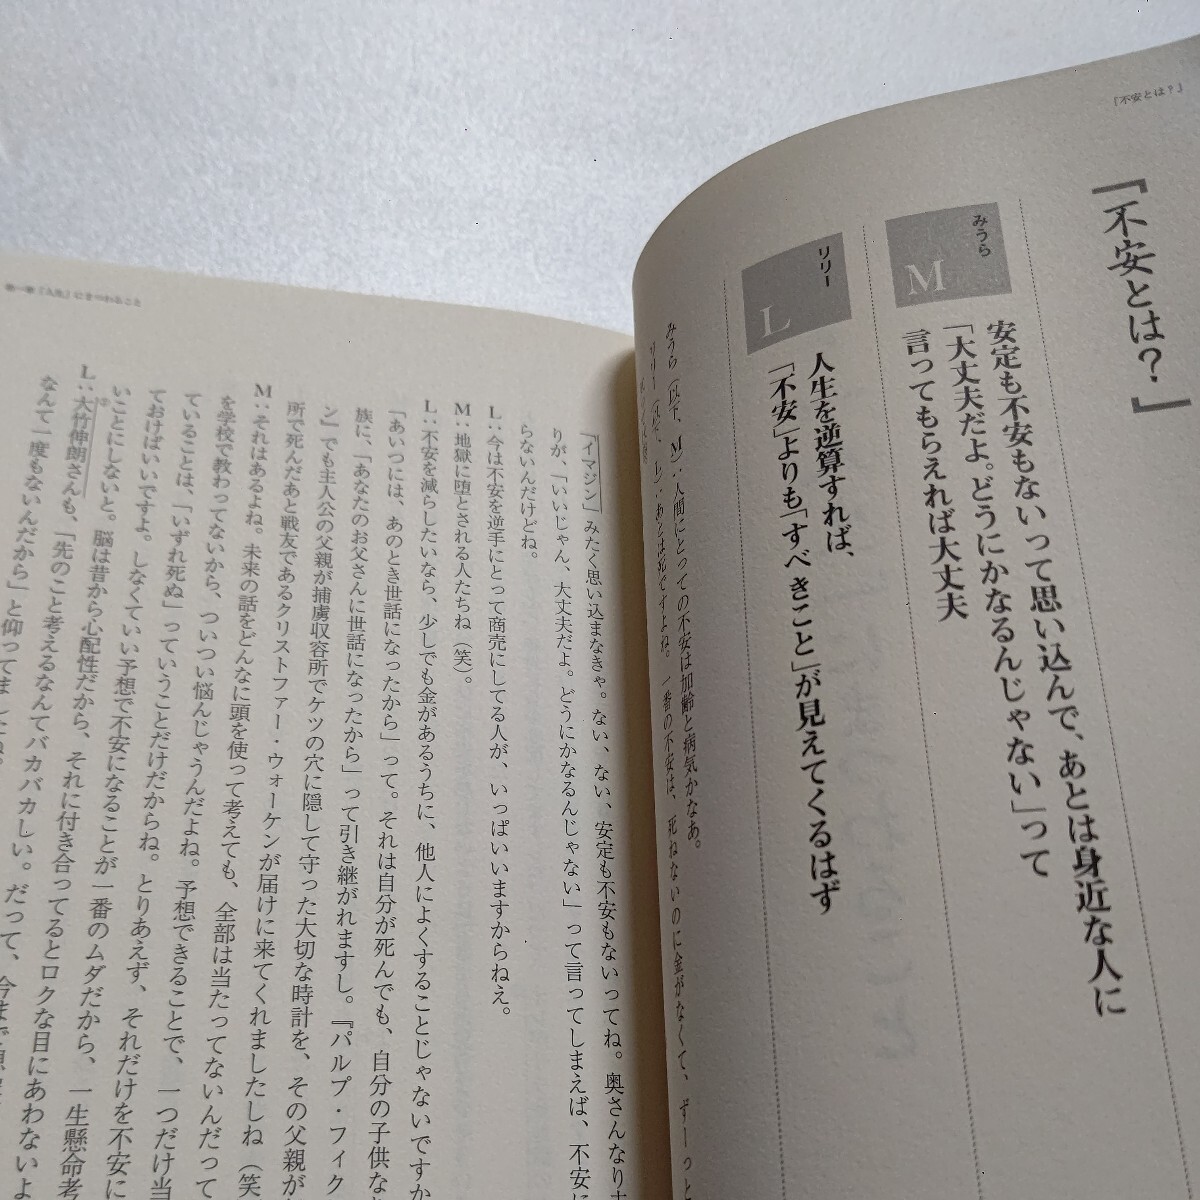 『不安とは？』
「不安とは？」
みうら
M
安定も不安もないって思い込んで、あとは身近な人に
「大丈夫だよ。どうにかなるんじゃない」って
言ってもらえれば大丈夫
リリー
L
人生を逆算すれば、
「不安」よりも「すべきこと」が見えてくるはず
みうら（以下、M）：人間にとっての不安は加齢と病気かなあ。
リリー（以下、L）：あとは死ですよね。一番の不安は、死ねないのに金がなくて、ずーっと
第一章「人生」にまつわること
「イマジン」みたく思い込まなきゃ。ない、ない、安定も不安もないってね。奥さんなり
りが、「いいじゃん、大丈夫だよ。どうにかなるんじゃない」って言ってしまえば、不安に
らないんだけどね。
L：今は不安を逆手にとって商売にしてる人が、いっぱいいますからねえ。
M：地獄に堕とされる人たちね（笑）。
L：不安を減らしたいなら、少しでも金があるうちに、他人によくすることじゃないですか
「あいつには、あのとき世話になったから」って。それは自分が死んでも、自分の子供な
族に、「あなたのお父さんに世話になったから」って引き継がれますし。『パルプ・フィク
ン』でも主人公の父親が捕虜収容所でケツの穴に隠して守った大切な時計を、その父親が
所で死んだあと戦友であるクリストファー・ウォーケンが届けに来てくれましたしね（笑
M：それはあるよね。未来の話をどんなに頭を使って考えても、全部は当たってないんだって
を学校で教わってないから、ついつい悩んじゃうんだよね。予想できることで、一つだけ当
ていることは、「いずれ死ぬ」っていうことだけだからね。とりあえず、それだけを不安に
ておけばいいですよ。しなくていい予想で不安になることが一番のムダだから、一生懸命考
いことにしないと。脳は昔から心配性だから、それに付き合ってるとロクな目にあわないよ
L：大竹伸朗さんも、「先のこと考えるなんてバカバカしい。だって、今まで
なんて一度もないんだから」と仰ってましたね。